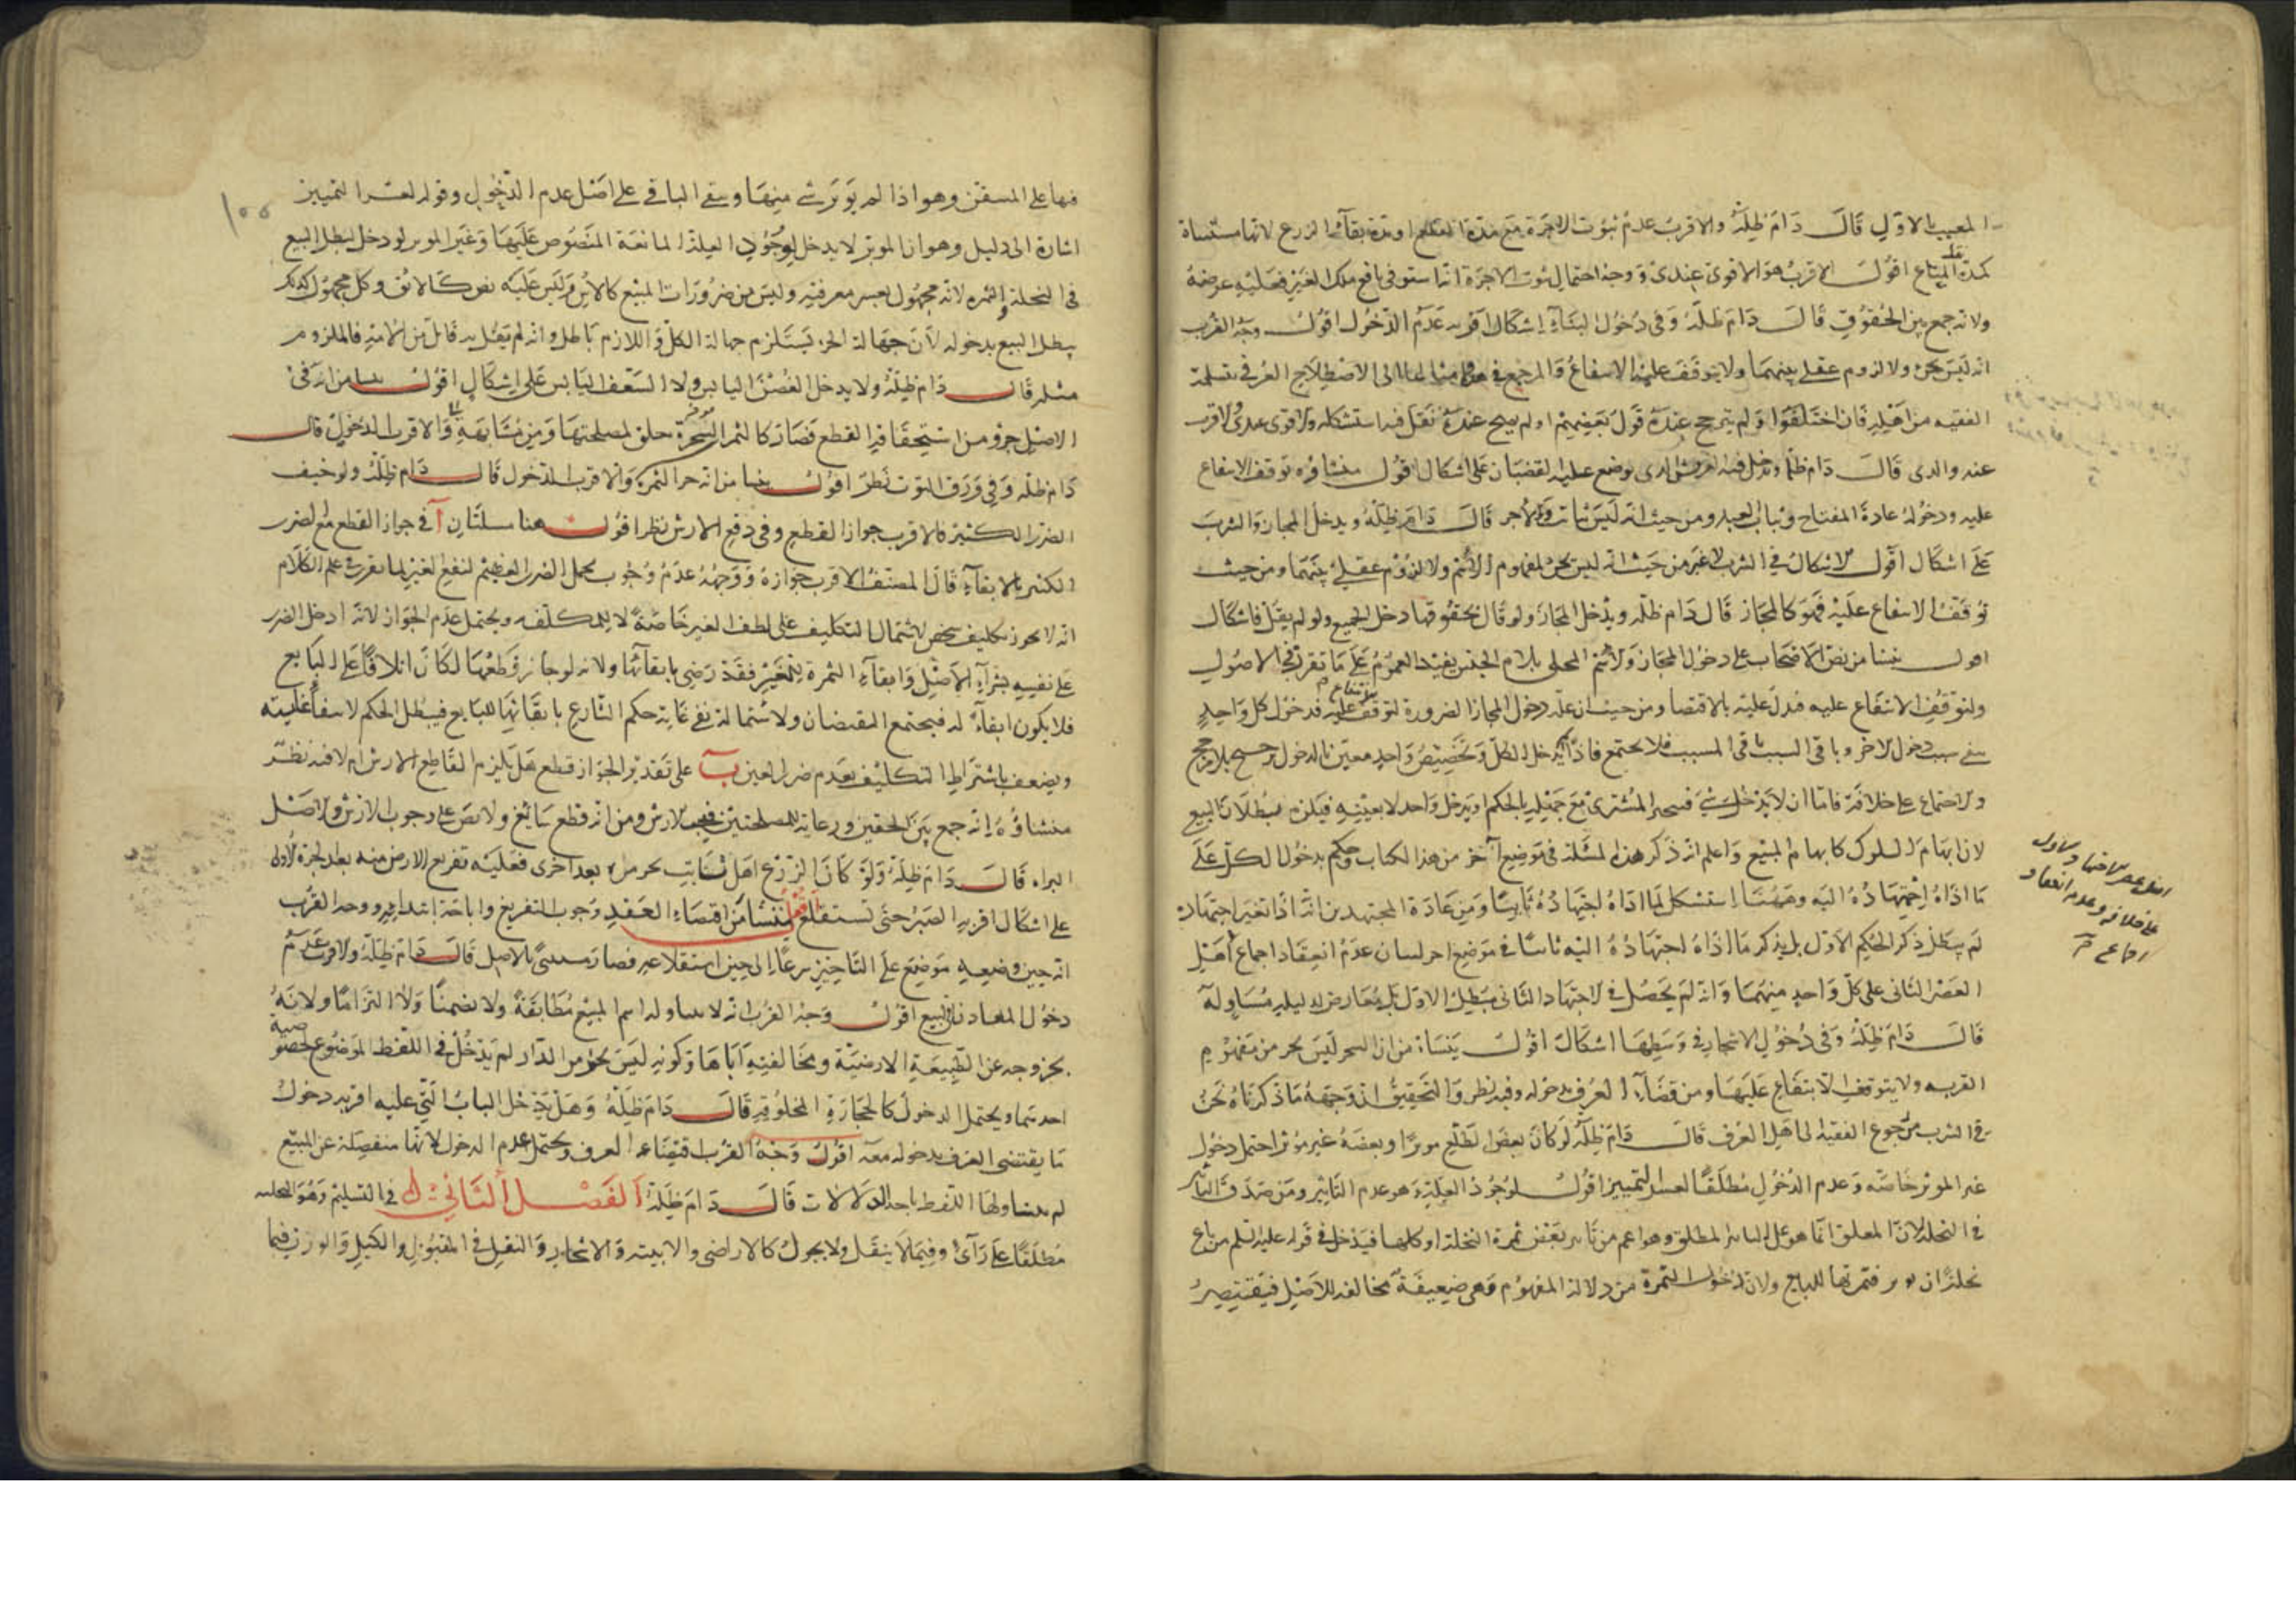 المعيب بالاول قال دام ظله والاقرب عدم ثبوت الاجرة مع مدة القلع او مدة بقاء الزرع لانها مستثناة
كمدة نقل المتاع اقول الاقرب هو الاقوى عندى ووجه احتمال ثبوت الاجرة انه استوفى نافع ملك الغير فعليه عوضه
ولانه جمع بين الحقوق قال دام ظله وفى دخول البناء اشكال اقربه عدم الدخول اقول وجه القرب
انه ليس بجزء ولا لزوم عقلى بينهما ولا يتوقف عليه الانتفاع والمرجع فى الى الاصطلاح العرفى يتسلمه
الفقيه من اهله فان اختلفوا ولم يترجح عنده قول بعضهم او لم يصح عنده نقل فيه استشكله والاقوى عندى والاقرب
عند والدى قال دام ظله ويدخل فيه العريش الذى يوضع عليه القضبان على اشكال اقول منشاؤه توقف الانتفاع
عليه ودخوله عادة المفتاح وثياب العبد ومن حيث انه ليس بثابت ولا جزء قال دام ظله ويدخل المجاز والشرب
على اشكال اقول الاشكال فى الشرب لا غير من حيث انه ليس بجزء لمفهوم الاسم ولا لزوم عقلى بينهما ومن حيث
توقف الانتفاع عليه فهو كالمجاز قال دام ظله ويدخل المجاز ولو قال بحقوقها دخل الجميع ولو لم يقل فاشكال
اقول ينشا من نص الاصحاب على دخول المجاز والاسم المحلى بلام الجنس يفيد العموم على ما تقرر فى الاصول
ولتوقف الانتفاع عليه فدل عليه بالاقتضا ومن حيث ان علة دخول المجاز الضرورة لتوقف الانتفاع عليه فدخول كل واحد
ينفى سبب دخول الاخر وباقى السبب باقى المسبب فلا يجتمع فاذا لم يدخل الكل وتخصيص واحد معين بالدخول ترجيح بلا مرجح
والاجماع على خلافه فاما ان لا يدخل شئ فيتخير المشترى مع جهله بالحكم او يدخل واحد لا بعينه فيلزم بطلان البيع
لان ابهام السلوك كابهام المبيع واعلم انه ذكر هذه المسئلة فى موضع آخر من هذا الكتاب وحكم بدخول الكل على
ما اداه اجتهاده اليه وههنا استشكل لما اداه اجتهاده ثانيا ومن عادة المجتهدين انه اذا تغير اجتهاده
لم يبطل ذكر الحكم الاول بل يذكر ما اداه اجتهاده اليه ثانيا فى موضع اخر لبيان عدم انعقاد اجماع اهل
العصر الثانى على كل واحد منهما وانه لم يحصل فى الاجتهاد الثانى مبطل الاول بل معارض لدليله مساو له
قال دام ظله وفى دخول الاشجار فى وسطها اشكال اقول ينشا من ان الشجر ليس بجزء من مفهوم
القرية ولا يتوقف الانتفاع عليها ومن قضاء العرف بدخوله وفيه نظر والتحقيق انه وجهه ما ذكرناه نحن
فى الشرب من رجوع الفقيه الى اهل العرف قال دام ظله لو كان بعض الطلع موبرا وبعضه غير موبر احتمل دخول
غير الموبر خاصة وعدم الدخول مطلقا لعسر التمييز اقول لوجود العلة وهو عدم التابير ومن صدق التابير
فى النخلة لان المعلق انما هو على التابير المطلق وهو اعم من تابير بعض ثمرة النخلة او كلها فيدخل فى قوله عليه السلم من باع
نخلا ان موبر فثمرتها للبايع ولان دخول الثمرة من دلالة المفهوم وهى ضعيفة مخالفة للاصل فيقتصر
اهل عصر الاجتهاد الاول
على خلافه وعدم انعقاد
اجماع
١٥٥
فيها على المتيقن وهو اذا لم يوبر شئ منها ويبقى الباقى على اصل عدم الدخول وقوله لعسر التمييز
اشارة الى دليل وهو ان الموبر لا يدخل لوجود العلة المانعة المنصوص عليها وغير الموبر لو دخل لبطل البيع
فى النخلة والثمرة لانه مجهول يعسر معرفته وليس من ضرورات المبيع كالاس وليس عليه نص كالابق وكل مجهول كذلك
يبطل البيع بدخوله لان جهالة الجزء يستلزم جهالة الكل واللازم باطل وانه لم يقل به قائل من الامة فالملزوم
مثله قال دام ظله ولا يدخل الغصن اليابس ولا السعف اليابس على اشكال اقول ينشا من انه فى
الاصل جزء ومن استحقاقه القطع فصار كالثمرة الشجرة خلق لمصلحتها ومن مشابهته والاقرب الدخول قال
دام ظله وفى ورق التوت نظر اقول ينشا من انه جزء الثمرة والاقرب الدخول قال دام ظله ولو خيف
الضرر الكثير فالاقرب جواز القطع وفى دفع الارش نظر اقول هنا مسئلتان آ فى جواز القطع مع الضرر
الكثير بالابقاء قال المصنف الاقرب جوازه ووجهه عدم وجوب تحمل الضرر العظيم لنفع الغير لما تقرر فى علم الكلام
انه لا يجوز تكليف شخص لاشتمال التكليف على لطف الغير خاصة لا للمكلف ويحتمل عدم الجواز لانه ادخل الضرر
على نفسه بشراء الاصل وابقاء الثمرة للغير فقد رضى بابقائها ولانه لو جاز قطعها لكان اتلافا على البايع
فلا يكون ابقاء له فيجتمع النقيضان ولاشتماله نفى غاية حكم الشارع بابقائها للبايع فيبطل الحكم لانتفاء غايته
ويضعف باشتراط التكليف بعدم ضرر العين ب على تقدير الجواز قطع هل يلزم القاطع الارش ام لا فيه نظر
منشاؤه انه جمع بين الحقين ورعاية المصلحتين فيجب الارش ومن انه قطع سايغ ولا نص على وجوب الارش والاصل
البراه قال دام ظله ولو كان الزرع اصل ثابت يجز مرة بعد اخرى فعليه تفريغ الارض منه بعد الجزة الاولى
على اشكال اقربه الصبر حتى تستقلع اقول منشا من اقتضاء العقد وجوب التفريغ واباحة ابتدايه ووجه القرب
انه حين وضعه موضع على التاخير شرعا الى حين استقلاعه فصار مستثنى بالاصل قال دام ظله والاقرب عدم
دخول المعادن فى البيع اقول وجه القرب انه لا يتناوله اسم المبيع مطابقة ولا تضمنا ولا التزاما ولانه
بخروجه عن الطبيعة الارضية ومخالفته اياها وكونه ليس بجزء من الدار لم يدخل فى اللفظ الموضوع لخصوصية
احديهما ويحتمل الدخول كالحجارة المخلوقة قال دام ظله وهل يدخل الباب التى عليه اقربه دخول
ما يقتضى العرف بدخوله معه اقول وجه القرب اقتضاء العرف ويحتمل عدم الدخول لانها منفصلة عن المبيع
لم يتناولها اللفظ باحد الدلالات قال دام ظله الفصل الثانى فى التسليم وهو التخلية
مطلقا على رأى وفيما لا ينقل ولا يحول كالاراضى والابنية والاشجار والنقل فى المقبوض والكيل والوزن فيما